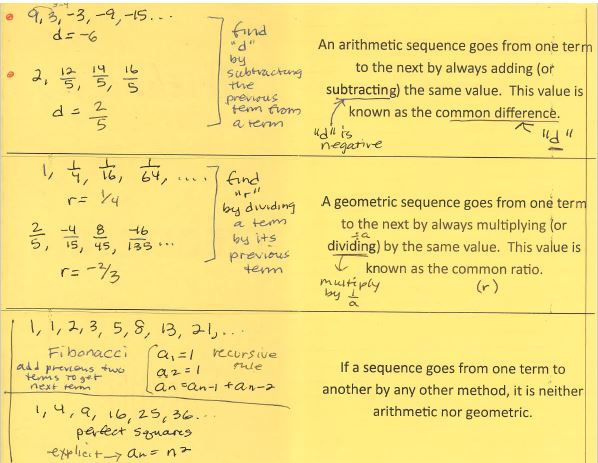 9, 3, -3, -9, -15...
d = -6
2, 12/5, 14/5, 16/5
d = 2/5
find
"d"
by
subtracting
the
previous
term from
a term
An arithmetic sequence goes from one term
to the next by always adding (or
subtracting) the same value. This value is
known as the common difference.
"d" is
negative
"d"
1, 1/4, 1/16, 1/64, ....
r = 1/4
2/5, -4/15, 8/45, -16/135...
r = -2/3
find
"r"
by dividing
a term
by its
previous
term
A geometric sequence goes from one term
to the next by always multiplying (or
÷a
dividing) by the same value. This value is
known as the common ratio.
multiply
by 1/a
(r)
1, 1, 2, 3, 5, 8, 13, 21, ...
Fibonacci
add previous two
terms to get
next term
a1 = 1 recursive
a2 = 1 rule
an = an-1 + an-2
1, 4, 9, 16, 25, 36...
perfect squares
explicit → an = n2
If a sequence goes from one term to
another by any other method, it is neither
arithmetic nor geometric.